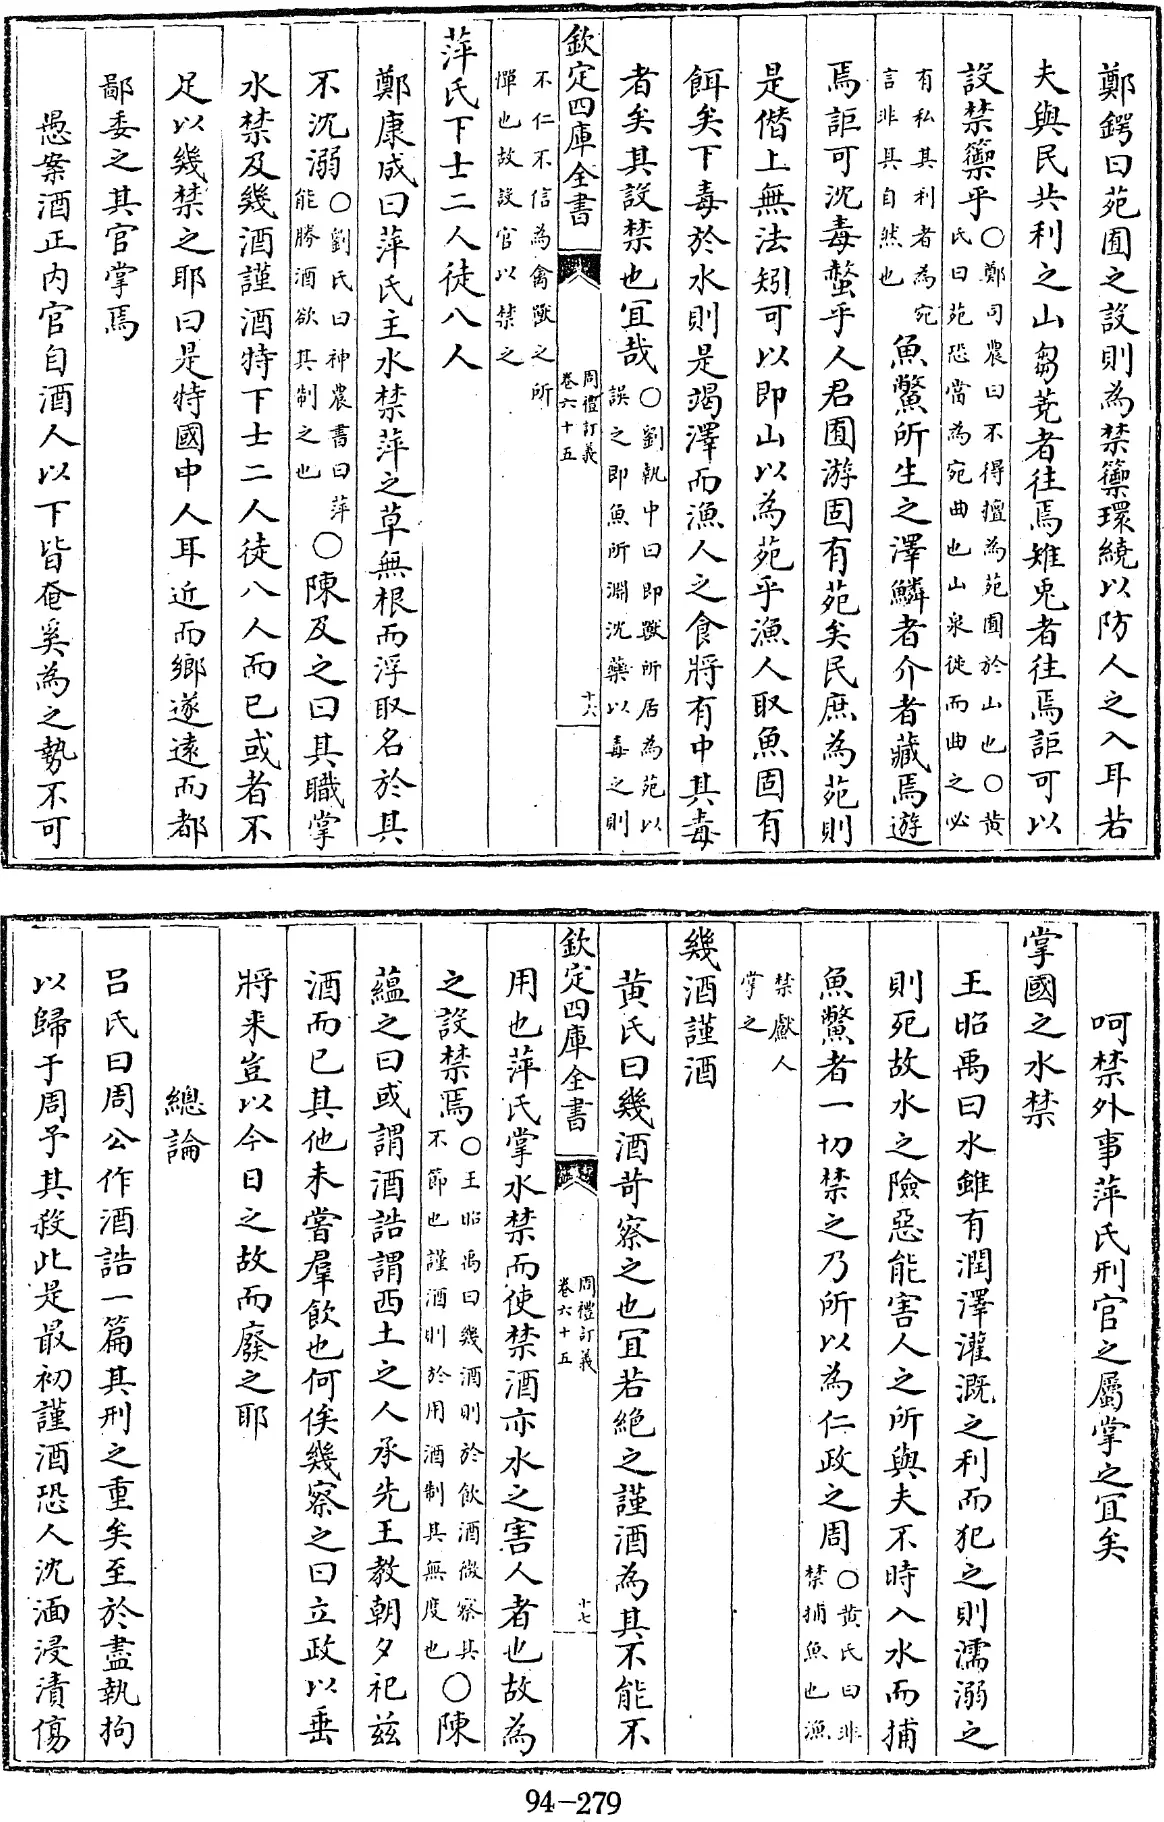 鄭鍔曰苑囿之設則為禁籞環繞以防人之入耳若
夫與民共利之山芻蕘者往焉雉兎者往焉詎可以
設禁籞乎○鄭司農曰不得擅為苑囿於山也○黄
氏曰苑恐當為宛曲也山泉徙而曲之必
有私其利者為宛
言非其自然也
魚鼈所生之澤鱗者介者藏焉遊
焉詎可沈毒螫乎人君囿游固有苑矣民庶為苑則
是僭上無法矧可以即山以為苑乎漁人取魚固有
餌矣下毒於水則是竭澤而漁人之食將有中其毒
者矣其設禁也宜哉○劉執中曰即獸所居為苑以
誤之即魚所淵沈藥以毒之則
欽定四庫全書
周禮訂義
卷六十五
十六
不仁不信為禽獸之所
憚也故設官以禁之
萍氏下士二人徒八人
鄭康成曰萍氏主水禁萍之草無根而浮取名於其
不沈溺○劉氏曰神農書曰萍
能勝酒欲其制之也
○陳及之曰其職掌
水禁及幾酒謹酒特下士二人徒八人而已或者不
足以幾禁之耶曰是特國中人耳近而鄉遂遠而都
鄙委之其官掌焉
愚案酒正内官自酒人以下皆奄奚為之勢不可
呵禁外事萍氏刑官之屬掌之宜矣
掌國之水禁
王昭禹曰水雖有潤澤灌溉之利而犯之則濡溺之
則死故水之險惡能害人之所與夫不時入水而捕
魚鼈者一切禁之乃所以為仁政之周○黄氏曰非
禁捕魚也漁
禁䱷人
掌之
幾酒謹酒
黄氏曰幾酒苛察之也宜若絶之謹酒為其不能不
欽定四庫全書
周禮訂義
卷六十五
十七
用也萍氏掌水禁而使禁酒亦水之害人者也故為
之設禁焉○王昭禹曰幾酒則於飲酒微察其
不節也謹酒則於用酒制其無度也
○陳
蘊之曰或謂酒誥謂西土之人承先王教朝夕祀兹
酒而已其他未嘗羣飲也何俟幾察之曰立政以垂
將来豈以今日之故而廢之耶
總論
吕氏曰周公作酒誥一篇其刑之重矣至於盡執拘
以歸于周予其殺此是最初謹酒恐人沈湎浸漬傷
94-279